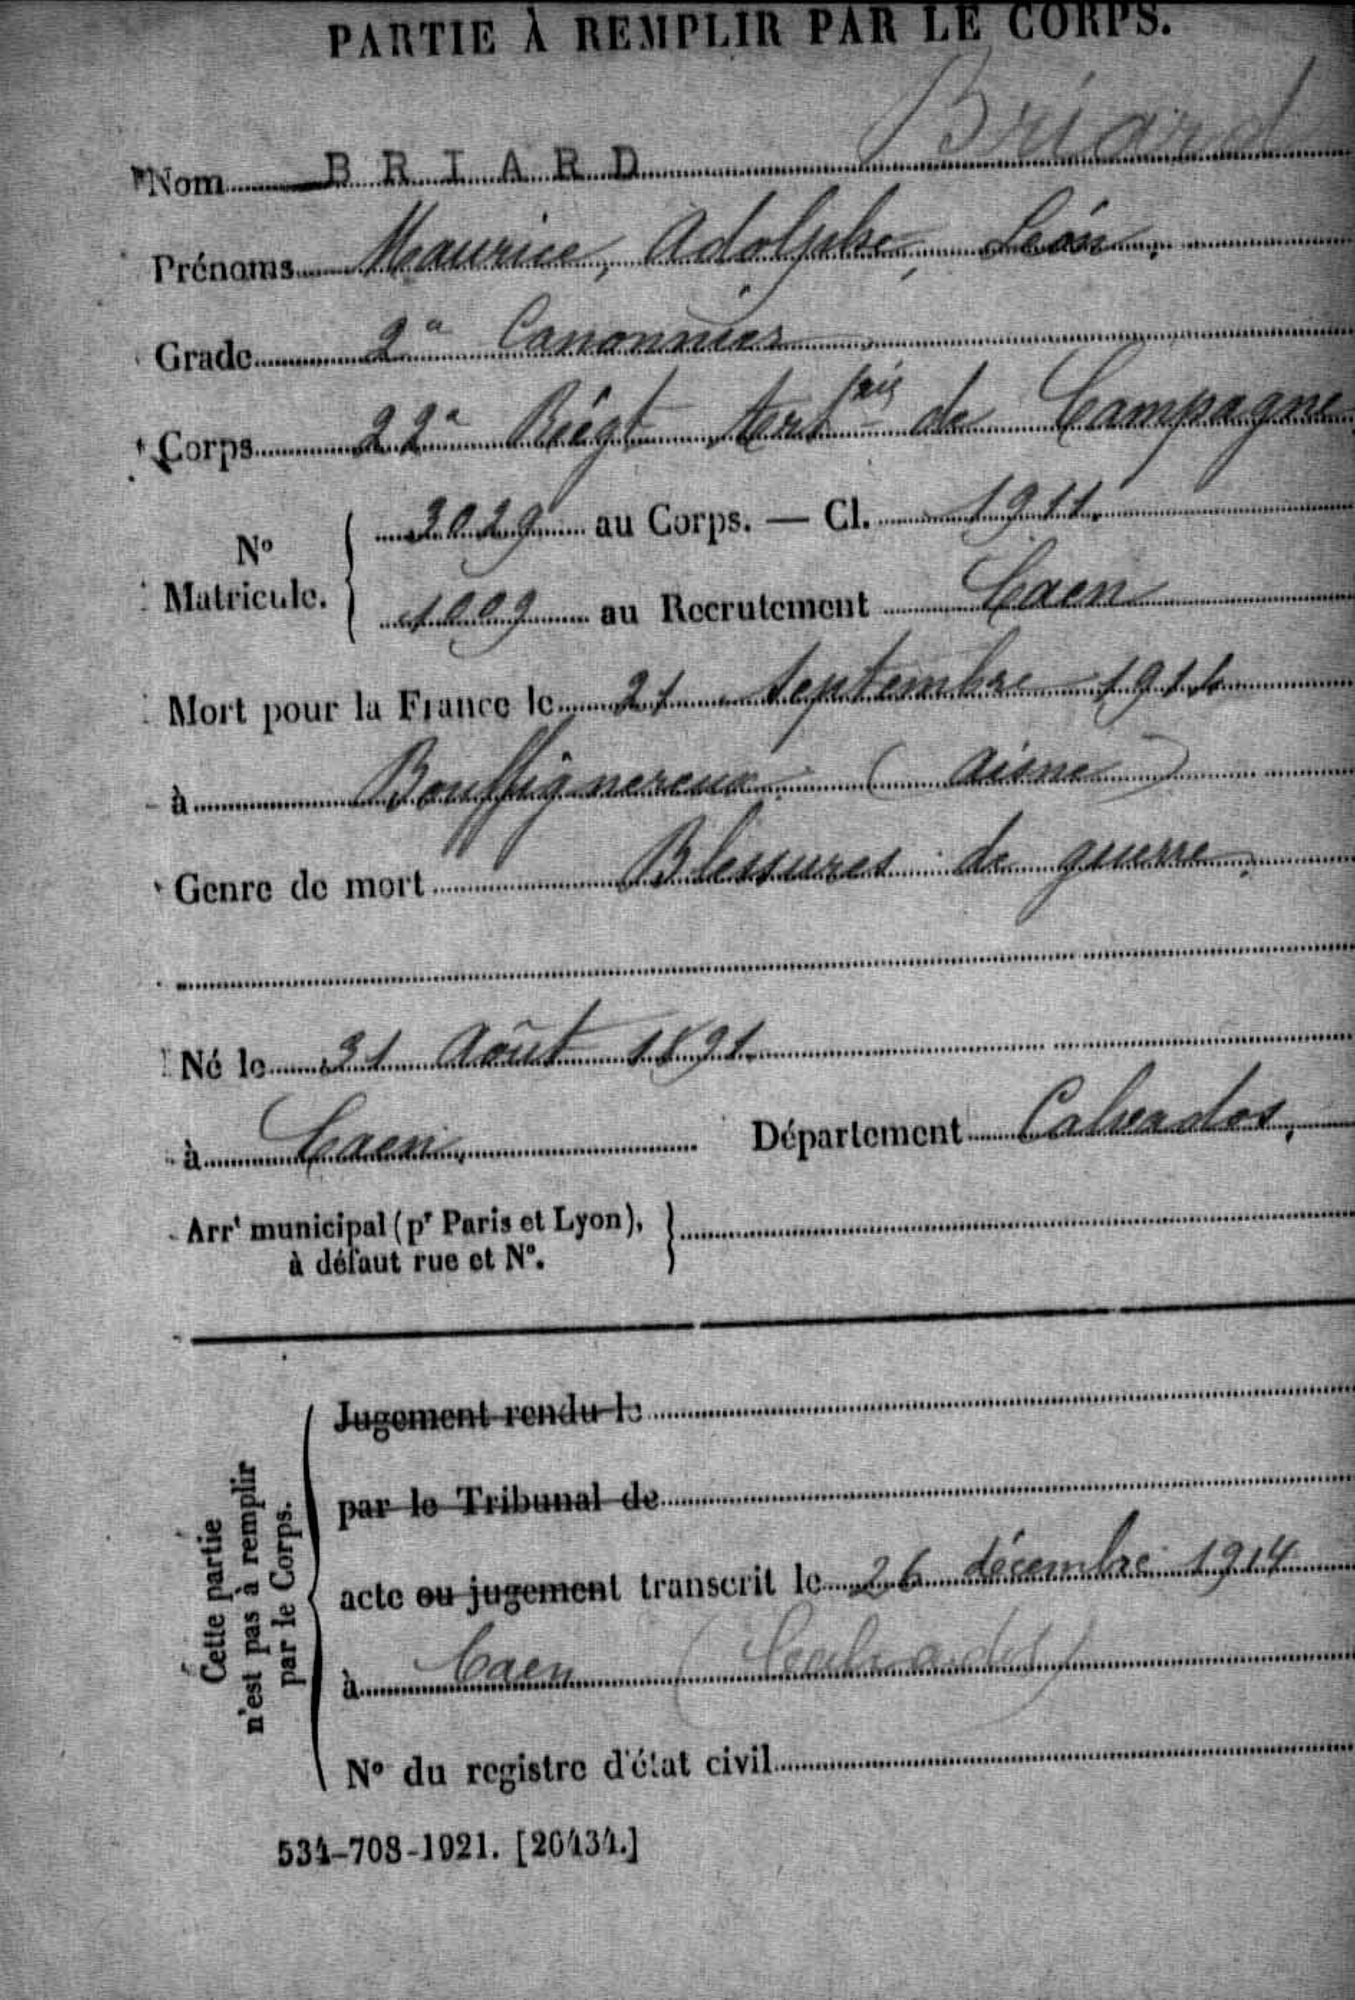 PARTIE À REMPLIR PAR LE CORPS.
Briard
Nom BRIARD
Prénoms Maurice, Adolphe, Léon.
Grade 2e Canonnier
Corps 22e Régt Art rie de Campagne
No Matricule. 2029 au Corps. — Cl. 1911.
1009 au Recrutement Caen
Mort pour la France le 21 Septembre 1914
à Bouffignereux (Aisne)
Genre de mort Blessures de guerre.
Né le 31 Août 1891.
à Caen. Département Calvados.
Arrt municipal (pr Paris et Lyon),
à défaut rue et No.
Cette partie
n'est pas à remplir
par le Corps.
Jugement rendu le
par le Tribunal de
acte ou jugement transcrit le 26 décembre 1914
à Caen (Calvados)
No du registre d'état civil
534-708-1921. [26434.]